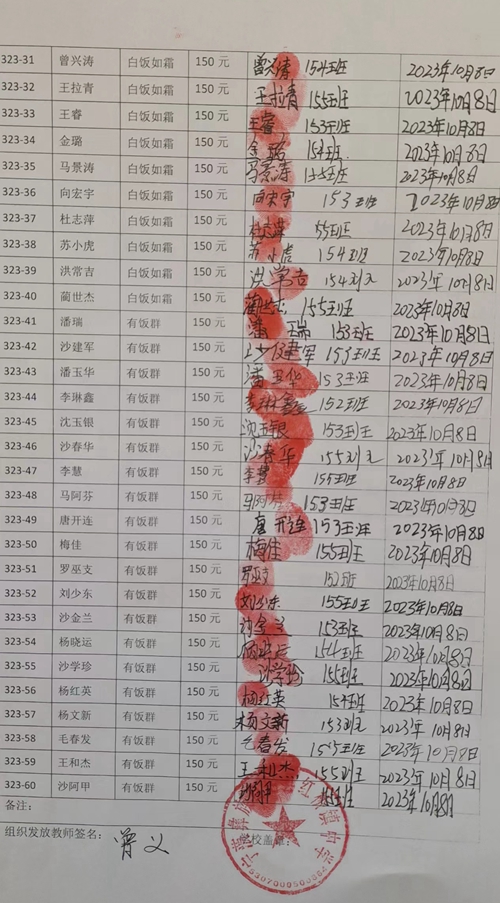 323-31 曾兴涛 白饭如霜 150 元 曾兴涛 154班 2023年10月8日
323-32 王拉青 白饭如霜 150 元 王拉青 155班 2023年10月8日
323-33 王睿 白饭如霜 150 元 王睿 153班 2023年10月8日
323-34 金璐 白饭如霜 150 元 金璐 154班 2023年10月8日
323-35 马景涛 白饭如霜 150 元 马景涛 155班 2023年10月8日
323-36 向宏宇 白饭如霜 150 元 向宏宇 153班 2023年10月8日
323-37 杜志萍 白饭如霜 150 元 杜志萍 155班 2023年10月8日
323-38 苏小虎 白饭如霜 150 元 苏小虎 154班 2023年10月8日
323-39 洪常吉 白饭如霜 150 元 洪常吉 154班 2023年10月8日
323-40 蔺世杰 白饭如霜 150 元 蔺世杰 155班 2023年10月8日
323-41 潘瑞 有饭群 150 元 潘瑞 153班 2023年10月8日
323-42 沙建军 有饭群 150 元 沙建军 153班 2023年10月8日
323-43 潘玉华 有饭群 150 元 潘玉华 153班 2023年10月8日
323-44 李琳鑫 有饭群 150 元 李琳鑫 152班 2023年10月8日
323-45 沈玉银 有饭群 150 元 沈玉银 153班 2023年10月8日
323-46 沙春华 有饭群 150 元 沙春华 155班 2023年10月8日
323-47 李慧 有饭群 150 元 李慧 155班 2023年10月8日
323-48 马阿芬 有饭群 150 元 153班 2023年10月8日
323-49 唐开连 有饭群 150 元 唐开连 153班 2023年10月8日
323-50 梅佳 有饭群 150 元 梅佳 155班 2023年10月8日
323-51 罗巫支 有饭群 150 元 罗巫支 152班 2023年10月8日
323-52 刘少东 有饭群 150 元 刘少东 155班 2023年10月8日
323-53 沙金兰 有饭群 150 元 沙金兰 153班 2023年10月8日
323-54 杨晓运 有饭群 150 元 154班 2023年10月8日
323-55 沙学珍 有饭群 150 元 沙学珍 155班 2023年10月8日
323-56 杨红英 有饭群 150 元 杨红英 154班 2023年10月8日
323-57 杨文新 有饭群 150 元 杨文新 153班 2023年10月8日
323-58 毛春发 有饭群 150 元 毛春发 155班 2023年10月8日
323-59 王和杰 有饭群 150 元 155班 2023年10月8日
323-60 沙阿甲 有饭群 150 元 2023年10月8日
备注：
组织发放教师签名： 学校盖章：